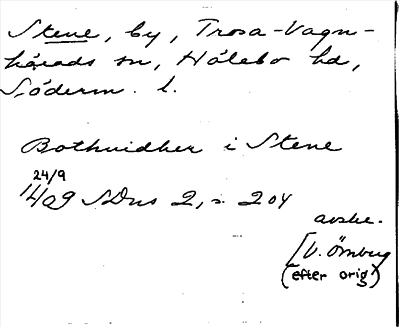 Stene, by, Trosa-Vagn-
härads sn, Hölebo hd,
Söderm. l.
Bothvidher i Stene
24/9
1409 SDns 2, s. 204
avskr.
[V. Örnberg
(efter orig)